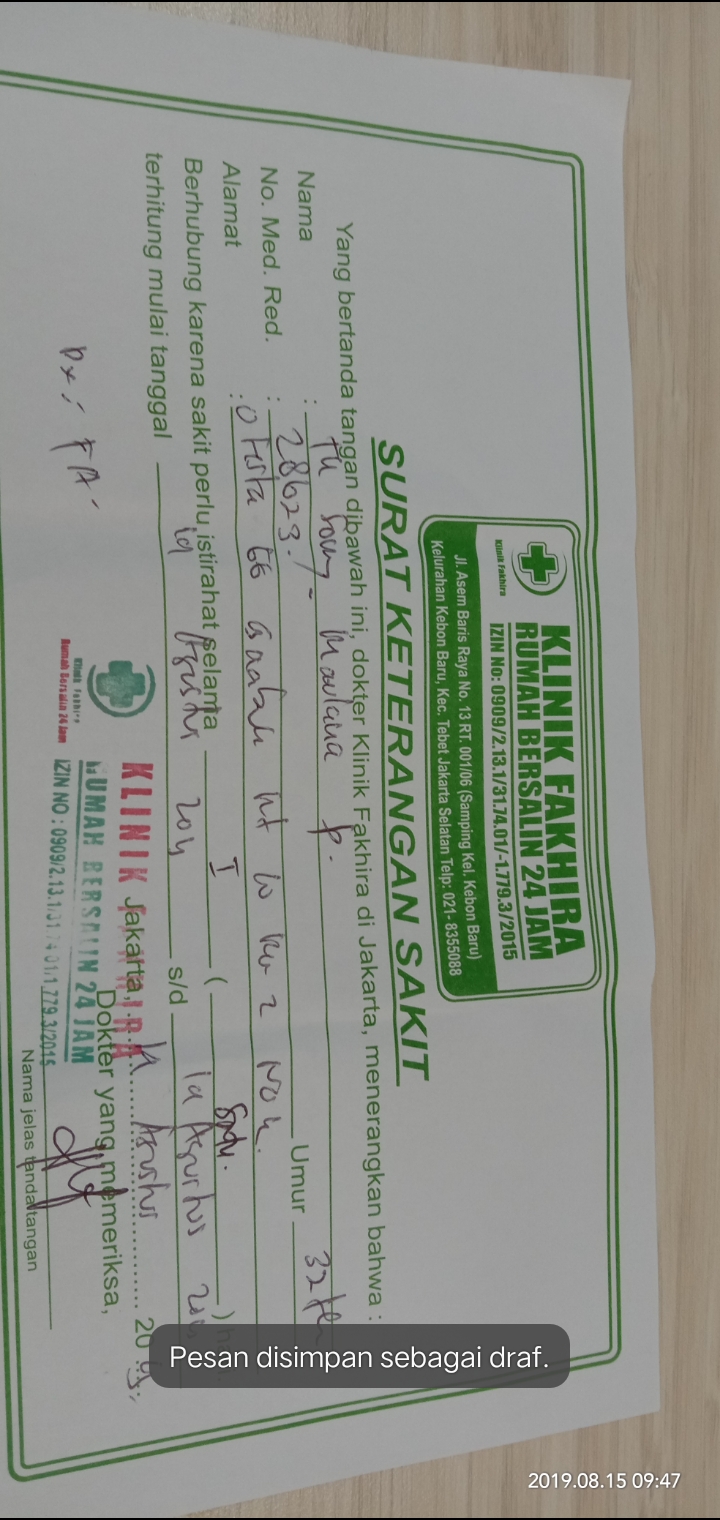 KLINIK FAKHIRA
RUMAH BERSALIN 24 JAM
IZIN No: 0909/2.13.1/31.74.01/-1.779.3/2015
Klinik Fakhira
Jl. Asem Baris Raya No. 13 RT. 001/06 (Samping Kel. Kebon Baru)
Kelurahan Kebon Baru, Kec. Tebet Jakarta Selatan Telp: 021-8355088
SURAT KETERANGAN SAKIT
Yang bertanda tangan dibawah ini, dokter Klinik Fakhira di Jakarta, menerangkan bahwa :
Nama : Maulana P. Umur 32
No. Med. Red. : 28623.
Alamat : Otista
Berhubung karena sakit perlu istirahat selama I ( ) hari
terhitung mulai tanggal Agustus s/d Agustus
Jakarta, Agustus 20
Dokter yang memeriksa,
KLINIK FAKHIRA
RUMAH BERSALIN 24 JAM
IZIN NO : 0909/2.13.1/31.74.01/1.779.3/2015
Klinik Fakhira
Rumah Bersalin 24 Jam
Dx :
Nama jelas tanda tangan
Pesan disimpan sebagai draf.
2019.08.15 09:47